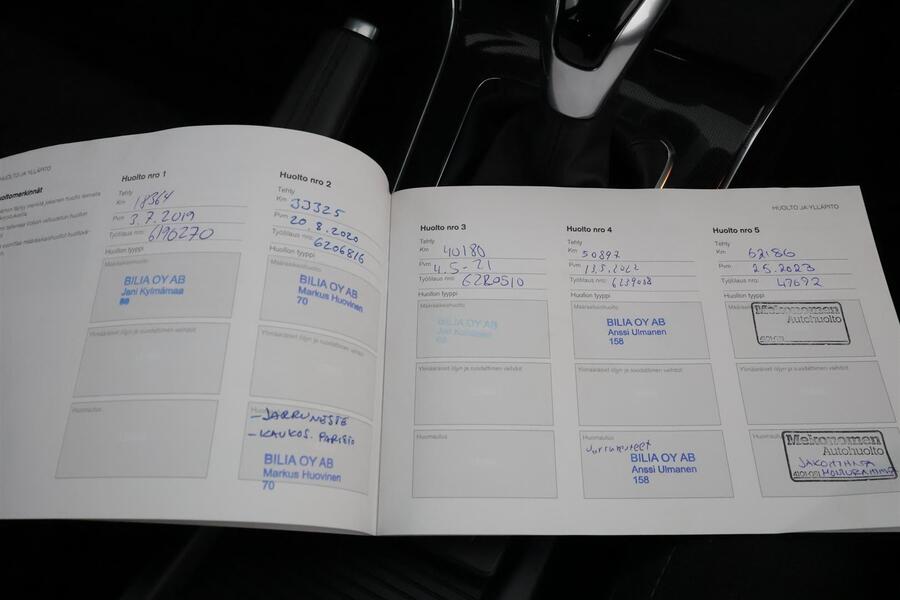 HUOLTO JA YLLÄPITO
Huolto nro 1
Tehty
Km 18364
Pvm 3.7.2019
Työtilaus nro: 6196270
Huollon tyyppi
Määräaikaishuolto
BILIA OY AB
Jani Kylmämaa
Ylimääräiset öljyn ja suodattimen vaihdot
Huomautus
Huolto nro 2
Tehty
Km 33325
Pvm 20.8.2020
Työtilaus nro: 6206816
Huollon tyyppi
Määräaikaishuolto
BILIA OY AB
Markus Huovinen
70
Ylimääräiset öljyn ja suodattimen vaihdot
- JARRUNESTE
- KAUKOS. PARISTO
BILIA OY AB
Markus Huovinen
70
Huolto nro 3
Tehty
Km 40180
Pvm 4.5-21
Työtilaus nro:
Huollon tyyppi
Määräaikaishuolto
BILIA OY AB
Ylimääräiset öljyn ja suodattimen vaihdot
Huomautus
Huolto nro 4
Tehty
Km 50897
Pvm 13.5.2022
Työtilaus nro:
Huollon tyyppi
Määräaikaishuolto
BILIA OY AB
Anssi Ulmanen
158
Ylimääräiset öljyn ja suodattimen vaihdot
Huomautus
BILIA OY AB
Anssi Ulmanen
158
HUOLTO JA YLLÄPITO
Huolto nro 5
Tehty
Km 62186
Pvm 25.2023
Työtilaus nro: 47692
Huollon tyyppi
Mekonomen
Autohuolto
Ylimääräiset öljyn ja suodattimen vaihdot
Mekonomen
Autohuolto
JAKOHIHNA